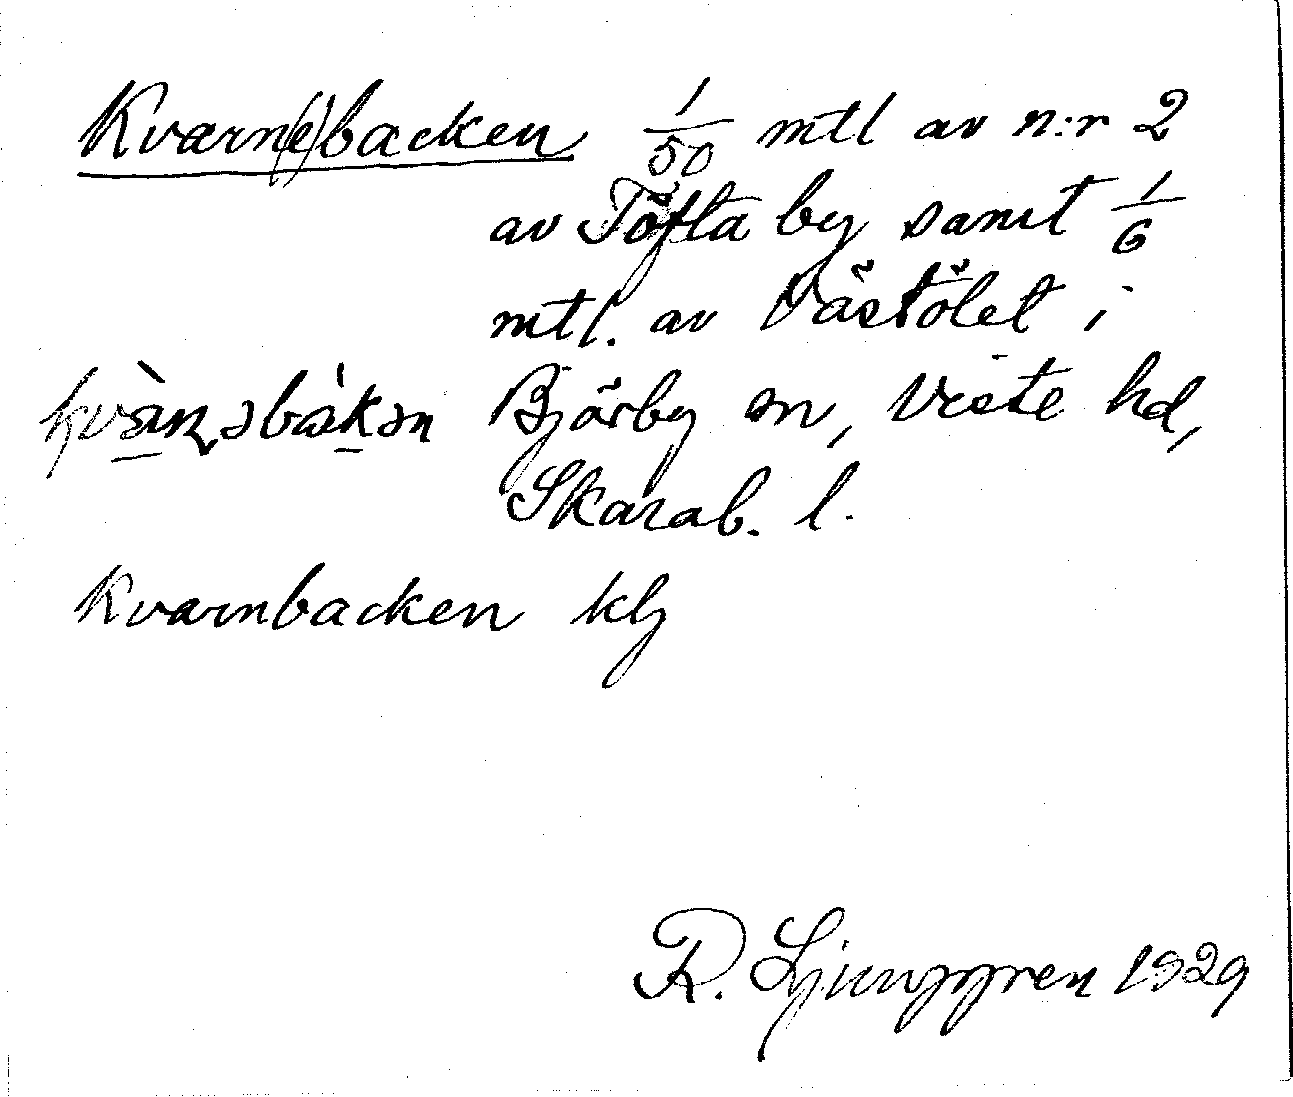 Kvarn(e)backen 1/50 mtl av n:r 2
av Töfta by samt 1/6
mtl. av Västölet i
Bjärby sn, Viste hd,
Skarab. l.
Kvarnbacken klj
R. Ljunggren 1929